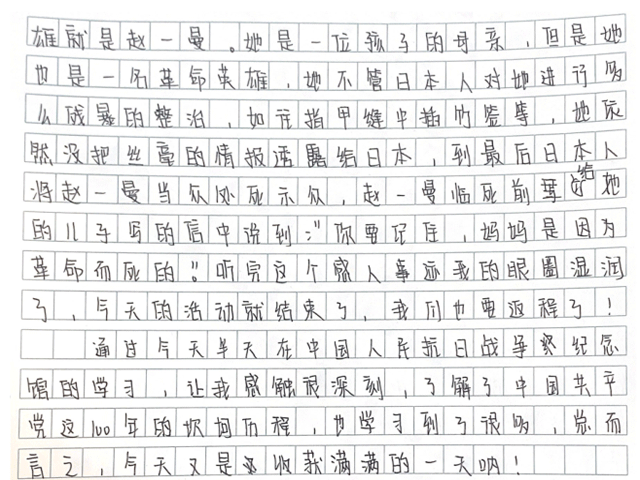 雄就是赵一曼。她是一位孩子的母亲,但是她
也是一名革命英雄,她不管日本人对她进行多
么残暴的整治,如往指甲缝中插竹签等,她依
然没把丝毫的情报透露给日本,到最后日本人
将赵一曼当众处死示众,赵一曼临死前写给她
的儿子写的信中说到:"你要记住,妈妈是因为
革命而死的。"听完这个感人事迹我的眼圈湿润
了,今天的活动就结束了,我们也要返程了!
通过今天半天在中国人民抗日战争纪念
馆的学习,让我感触很深刻,了解了中国共产
党这100年的坎坷历程,也学习到了很多,总而
言之,今天又是收获满满的一天呐!